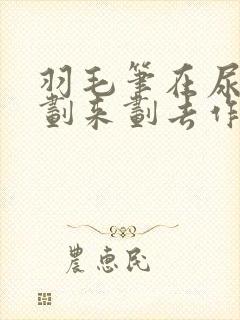 羽毛筆在尿
劃来劃去作
農惠民